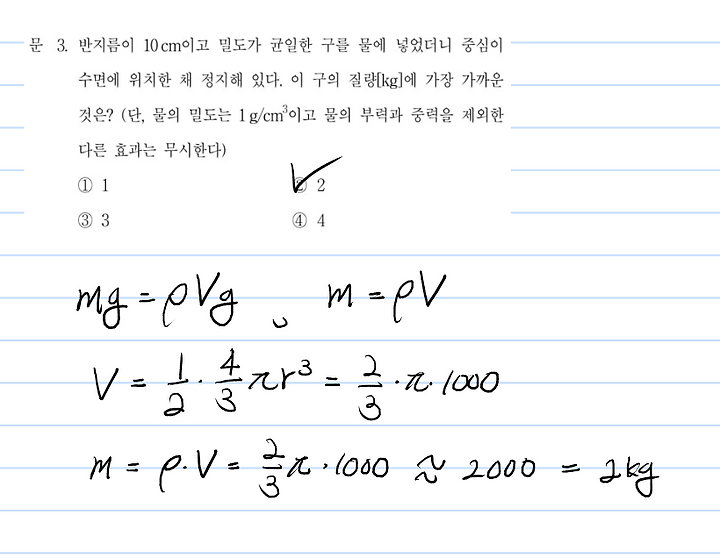 문 3. 반지름이 10cm이고 밀도가 균일한 구를 물에 넣었더니 중심이
수면에 위치한 채 정지해 있다. 이 구의 질량[kg]에 가장 가까운
것은? (단, 물의 밀도는 1g/cm³이고 물의 부력과 중력을 제외한
다른 효과는 무시한다)
① 1 ② 2
③ 3 ④ 4
mg = ρVg, m = ρV
V = 1/2 · 4/3 πr³ = 2/3 · π · 1000
m = ρ · V = 2/3 π · 1000 ≈ 2000 = 2kg